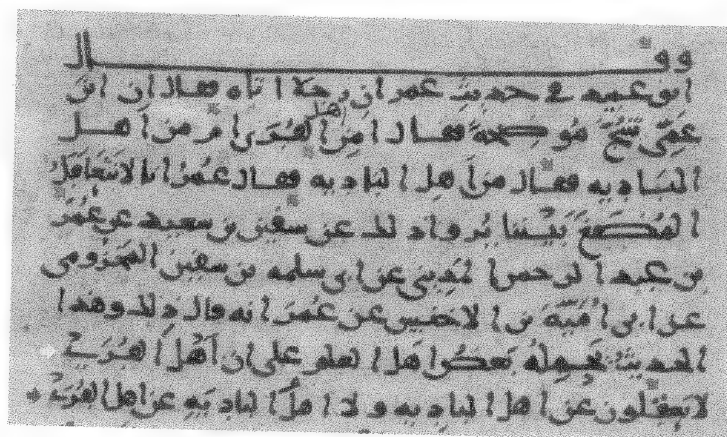 وقال
ابو عبيد في حديث عمر ان رجلا اتاه فقال ان ابن
عمى شج موضحة فقال امن اهل القرى ام من اهل
البادية فقال من اهل البادية فقال عمر انا لا نتعاقل
المضغ بيننا يروا ذلك عن سفين بن سعيد عن عمر
بن عبد الرحمن المديني عن ابى سلمه بن سفين المخزومى
عن ابى امية بن الاخنس عن عمر انه قال ذلك وهذا
الحديث يحمله بعض اهل العلم على ان اهل القرى
لا يعقلون عن اهل البادية ولا اهل البادية عن اهل القرى